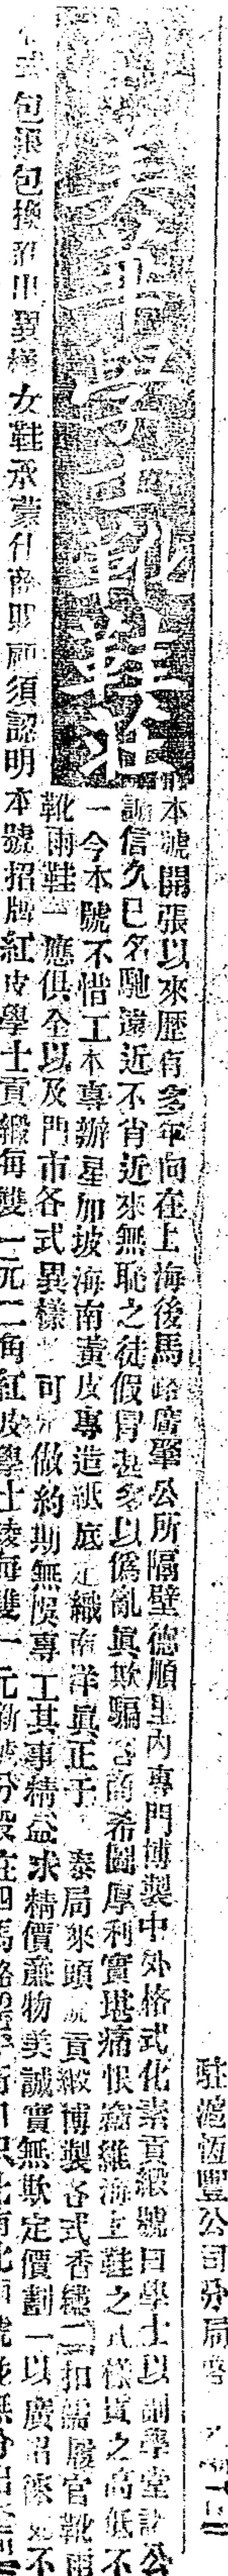 駐滬恆豐公司分局啓
學士靴鞋莊
本號開張以來歷有多年向在上海後馬路廣肇公所隔壁德順里內專門博製中外格式化素貢緞號曰學士以副學堂諸公
信久已名馳遠近不肖近來無恥之徒假冒甚多以僞亂眞欺騙客商希圖厚利實堪痛恨竊維海上鞋之式樣貨之高低不
一今本號不惜工本專辦星加坡海南黃皮專造紙底定織南洋眞正泰局來頭貢緞博製各式香繡二扣諸履官靴雨
靴雨鞋一應俱全以及門市各式異樣可做約期無悞專工其事精益求精價廉物美誠實無欺定價劃一以廣招徠不
式包退包換新出異樣女鞋承蒙仕商賜顧須認明本號招牌紅皮學士貢緞每雙一元二角紅皮學士綾每雙一元分設在四馬路